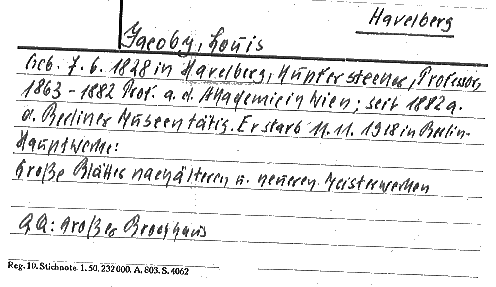 Havelberg
Jacoby, Louis
Geb. 7. 6. 1828 in Havelberg, Kupferstecher, Professor,
1863 - 1882 Prof. a. d. Akademie in Wien; seit 1882 a.
d. Berliner Museen tätig. Er starb 11. 11. 1918 in Berlin.
Hauptwerke:
Große Blätter nach älteren u. neueren Meisterwerken
QQ: Großer Brockhaus
Reg. 10. Stichnote. 1. 50. 232000. A. 803. S. 4062